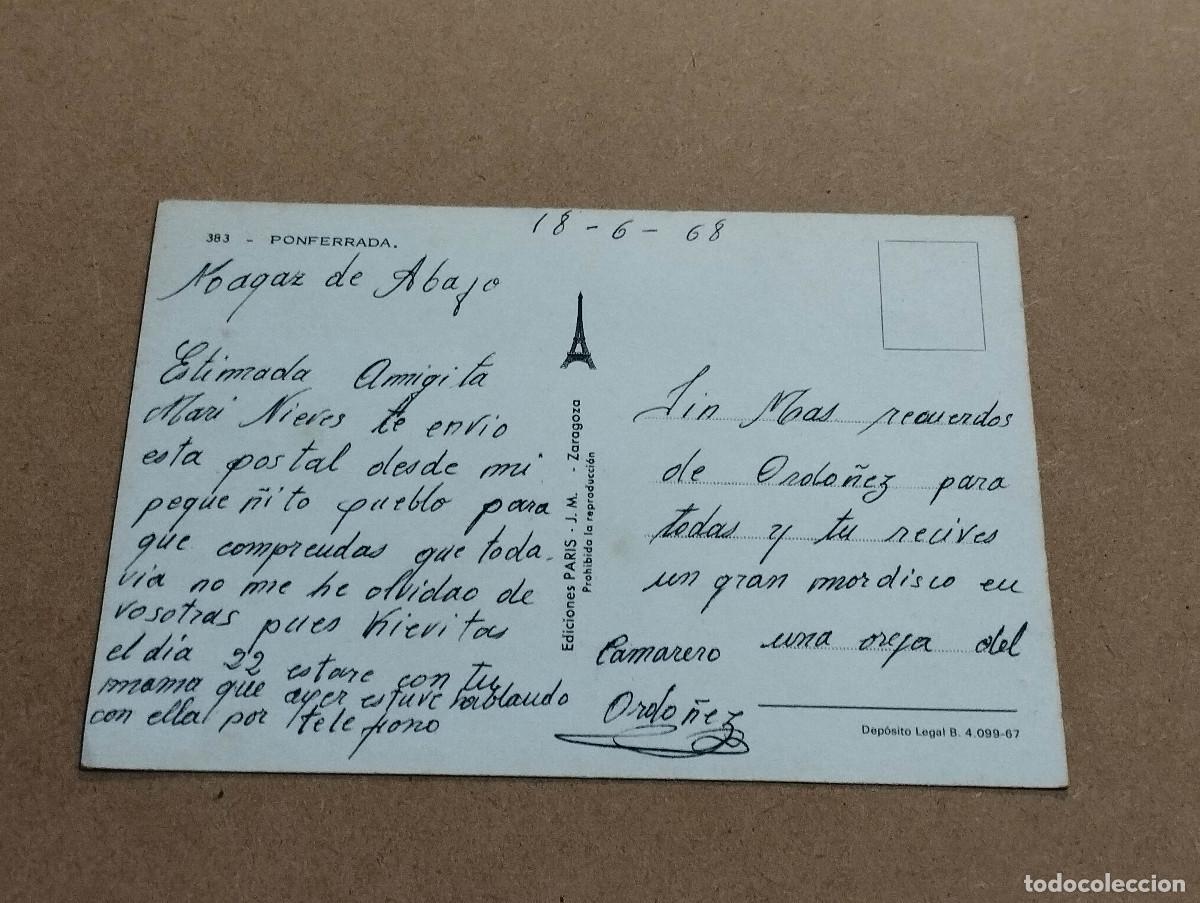 18-6-68
383 - PONFERRADA.
Magaz de Abajo
Estimada Amigita
Mari Nieves te envio
esta postal desde mi
pequeñito pueblo para
que comprendas que toda-
via no me he olvidao de
vosotras pues Nievitas
el dia 22 estare con tu
mama que ayer estuve hablando
con ella por telefono
Ediciones PARIS - J. M. - Zaragoza
Prohibida la reproducción
Sin Mas recuerdos
de Ordoñez para
todas y tu recives
un gran mordisco en
una oreja del
Camarero
Ordoñez
Depósito Legal B. 4.099-67
todocoleccion